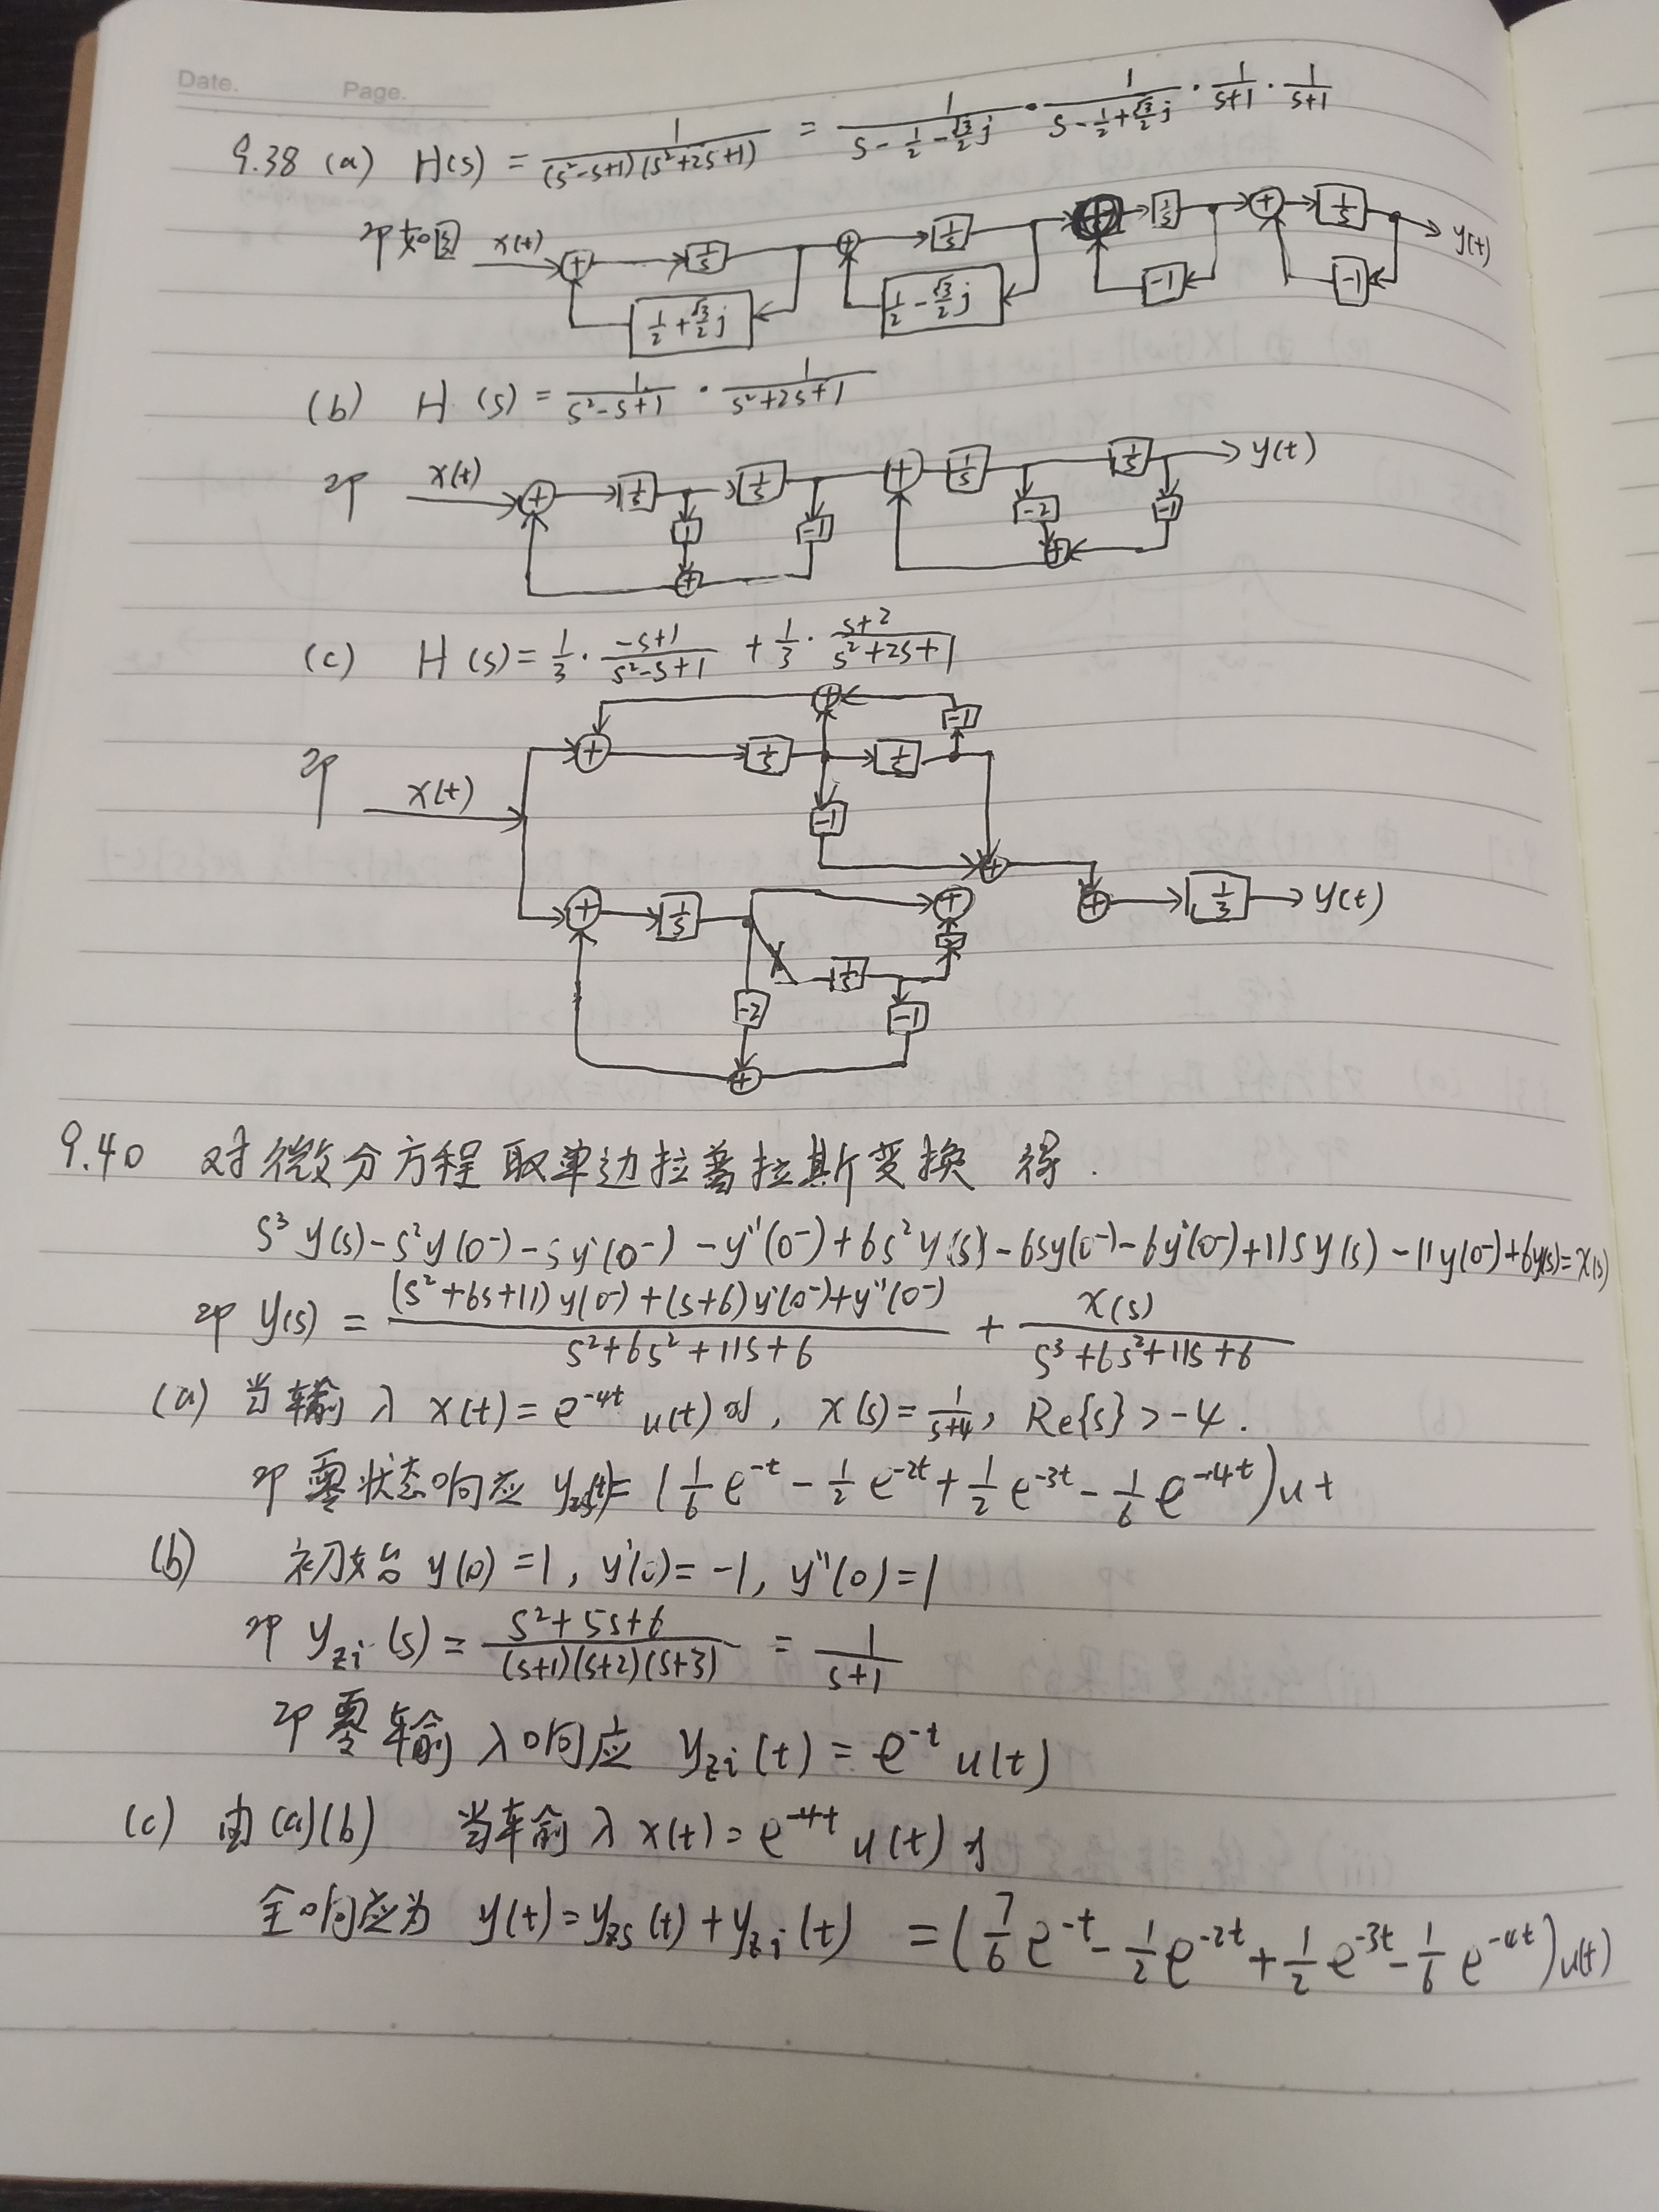 Date. Page.
9.38 (a) H(s) = 1/((s²-s+1)(s²+2s+1)) = 1/(s-1/2-(√3/2)j) · 1/(s-1/2+(√3/2)j) · 1/(s+1) · 1/(s+1)
即如图 x(t) + 1/s + 1/s + 1/s + 1/s y(t)
1/2+(√3/2)j 1/2-(√3/2)j -1 -1
(b) H(s) = 1/(s²-s+1) · 1/(s²+2s+1)
即 x(t) + 1/s 1/s + 1/s 1/s y(t)
1 -1 -2 -1
+ +
(c) H(s) = 1/3 · (-s+1)/(s²-s+1) + 1/3 · (s+2)/(s²+2s+1)
+ -1
即 x(t) + 1/s 1/s
-1
+
+ 1/s + + 1/3 y(t)
1/s
-2 -1
+
9.40 对微分方程取单边拉普拉斯变换 得.
s³y(s)-s²y(0⁻)-sy'(0⁻)-y''(0⁻)+6s²y(s)-6sy(0⁻)-6y'(0⁻)+11sy(s)-11y(0⁻)+6y(s)=x(s)
即 y(s) = ((s²+6s+11)y(0⁻)+(s+6)y'(0⁻)+y''(0⁻))/(s²+6s²+11s+6) + x(s)/(s³+6s²+11s+6)
(a) 当输入 x(t)=e^{-4t}u(t)时, x(s)=1/(s+4), Re{s}>-4.
即零状态响应 y_{zs}(t)=(1/6 e^{-t} - 1/2 e^{-2t} + 1/2 e^{-3t} - 1/6 e^{-4t})ut
(b) 初始 y(0)=1, y'(0)=-1, y''(0)=1
即 y_{zi}(s) = (s²+5s+6)/((s+1)(s+2)(s+3)) = 1/(s+1)
即零输入响应 y_{zi}(t) = e^{-t}u(t)
(c) 由(a)(b) 当输入 x(t)=e^{-4t}u(t)时
全响应为 y(t)=y_{zs}(t)+y_{zi}(t) =(7/6 e^{-t} - 1/2 e^{-2t} + 1/2 e^{-3t} - 1/6 e^{-4t})u(t)